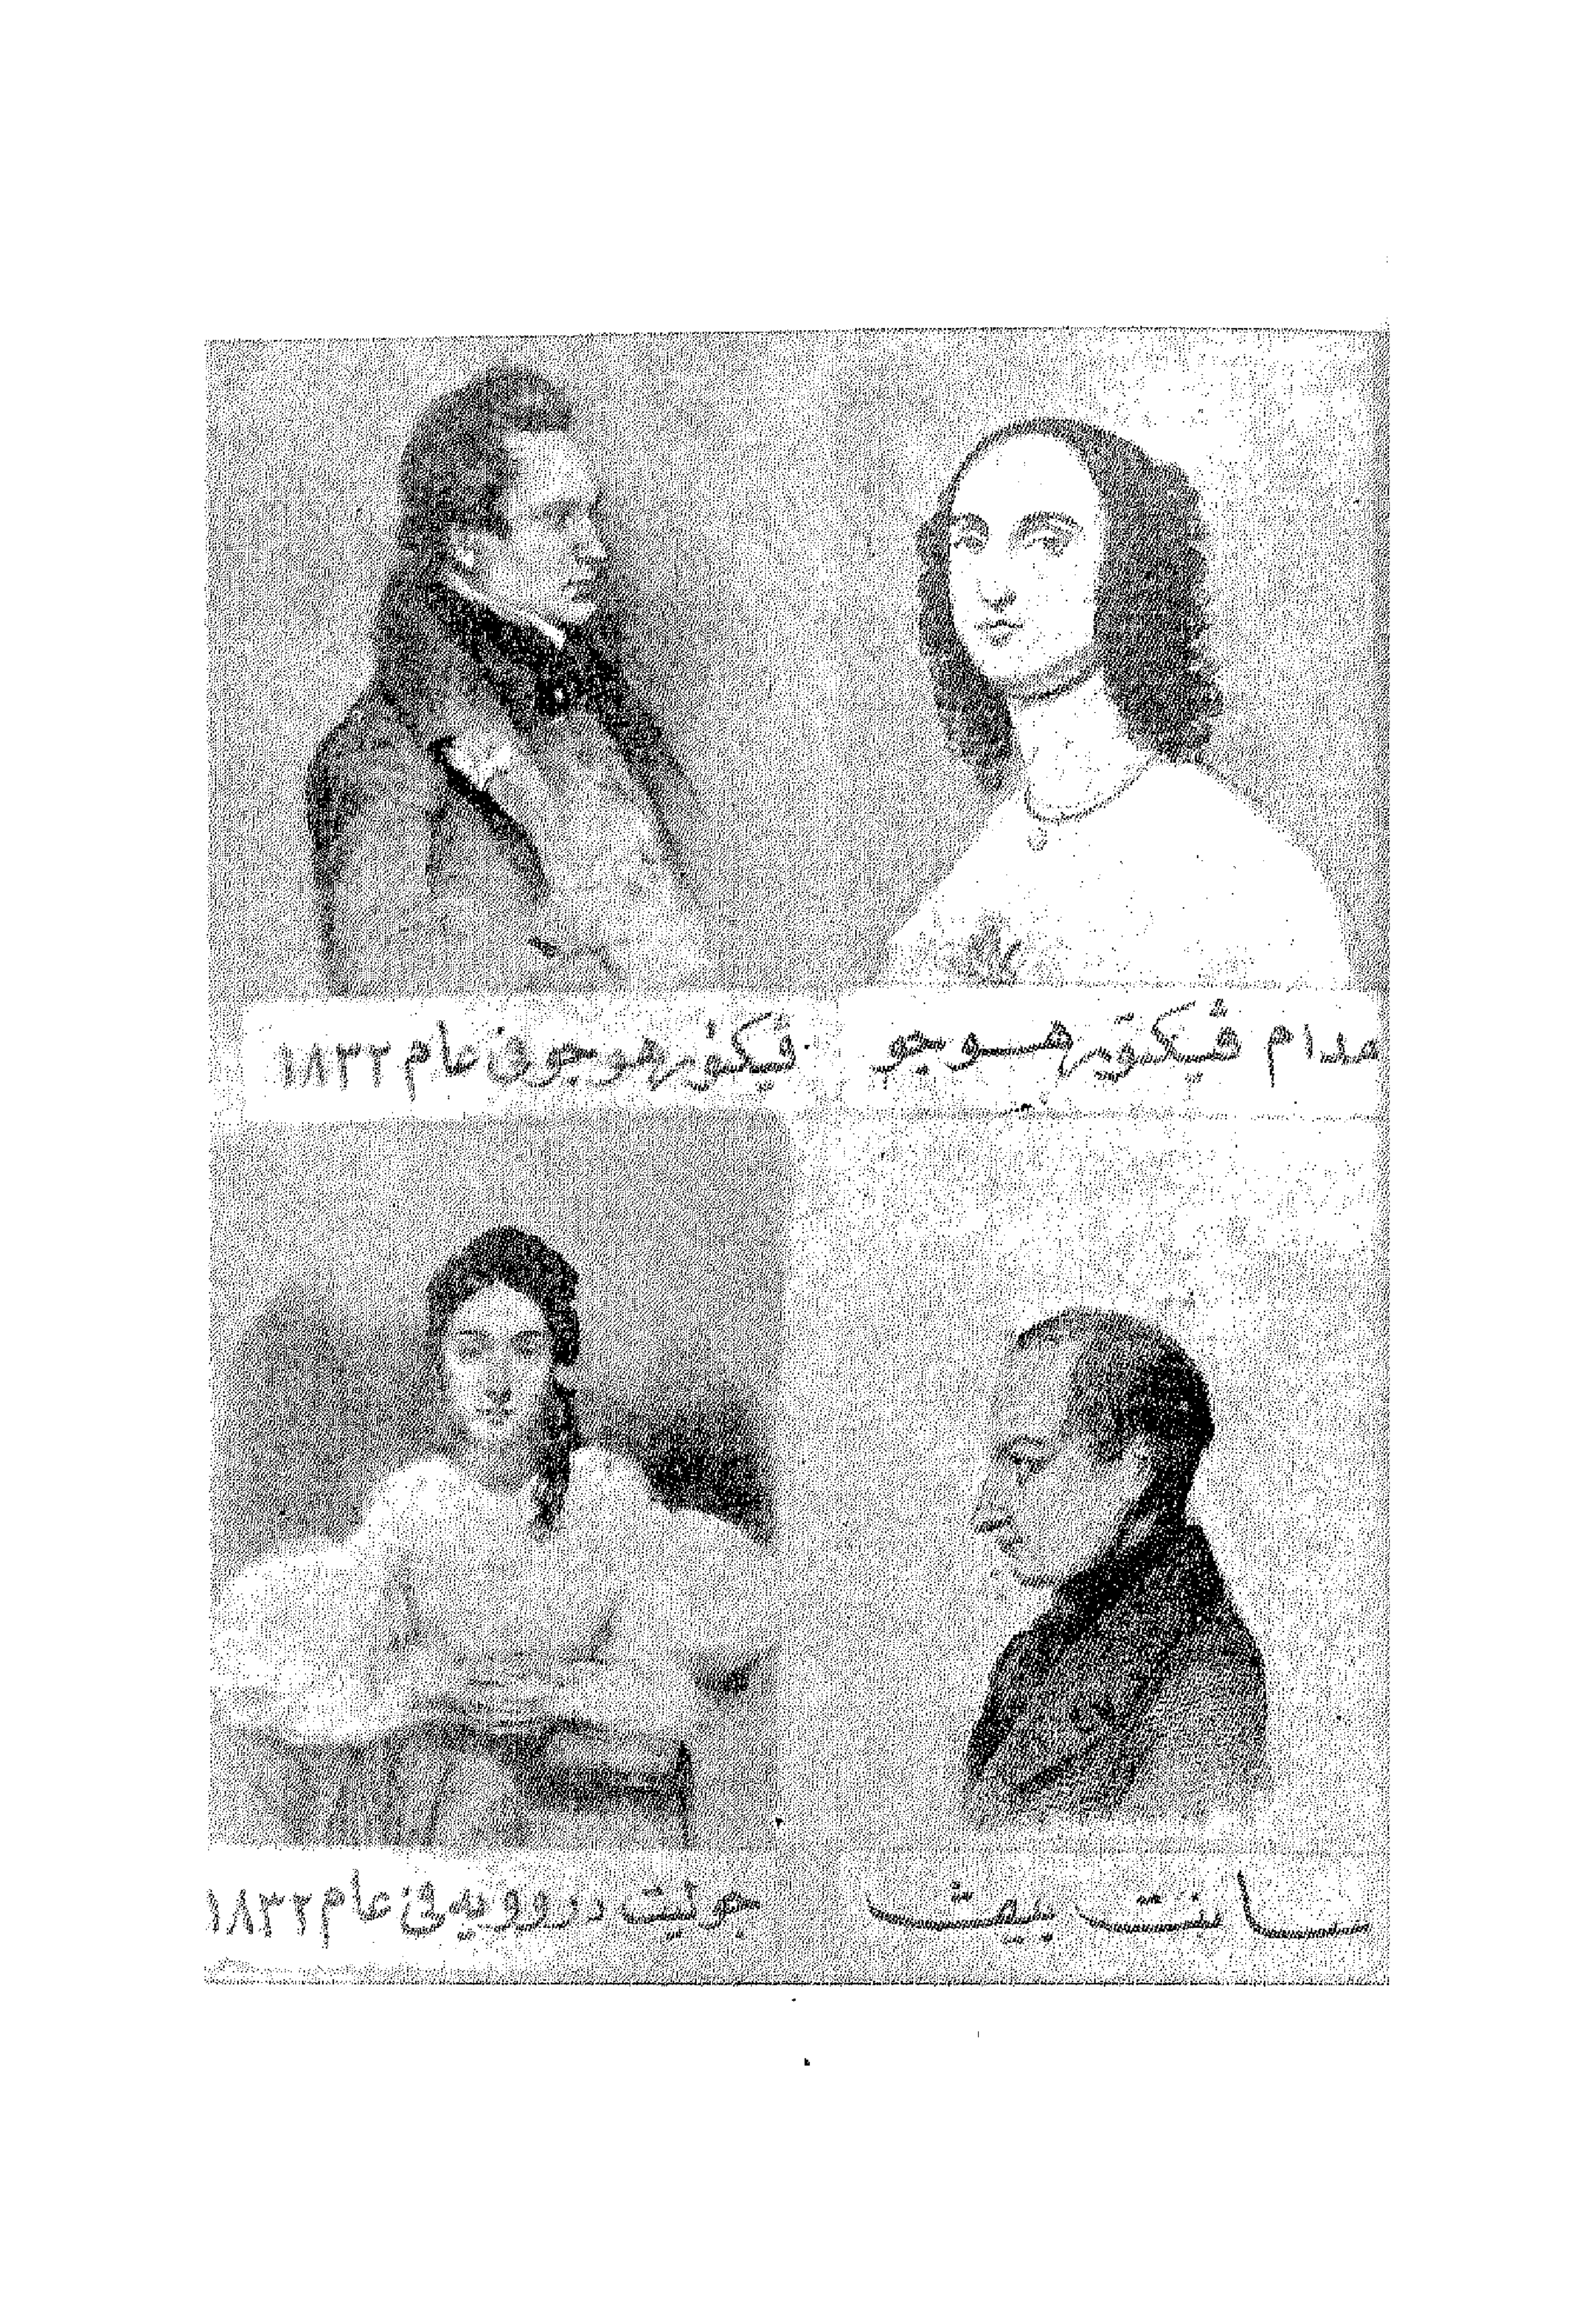 مدام ڤيكتور هوجو
ڤيكتور هوجو في عام ١٨٣٢
سانت بيڤ
جوليت دروويه في عام ١٨٣٢